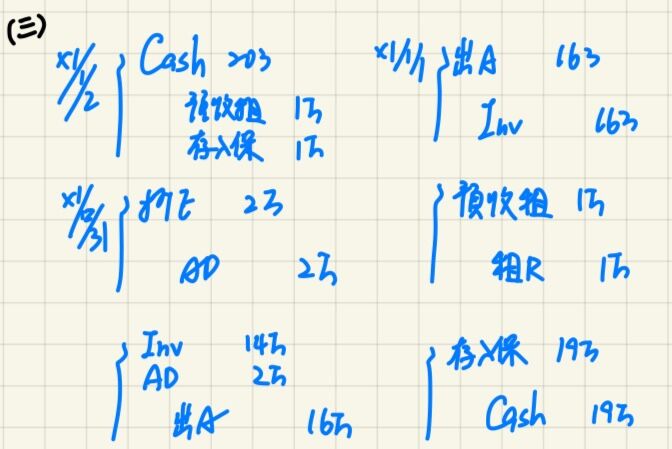 (三)
X1/1/2 Cash 20万
預收租 1万
存入保 1万
X1/1/1 出A 16万
Inv 16万
X1/12/31 折E 2万
AD 2万
預收租 1万
租R 1万
Inv 14万
AD 2万
出A 16万
存入保 19万
Cash 19万